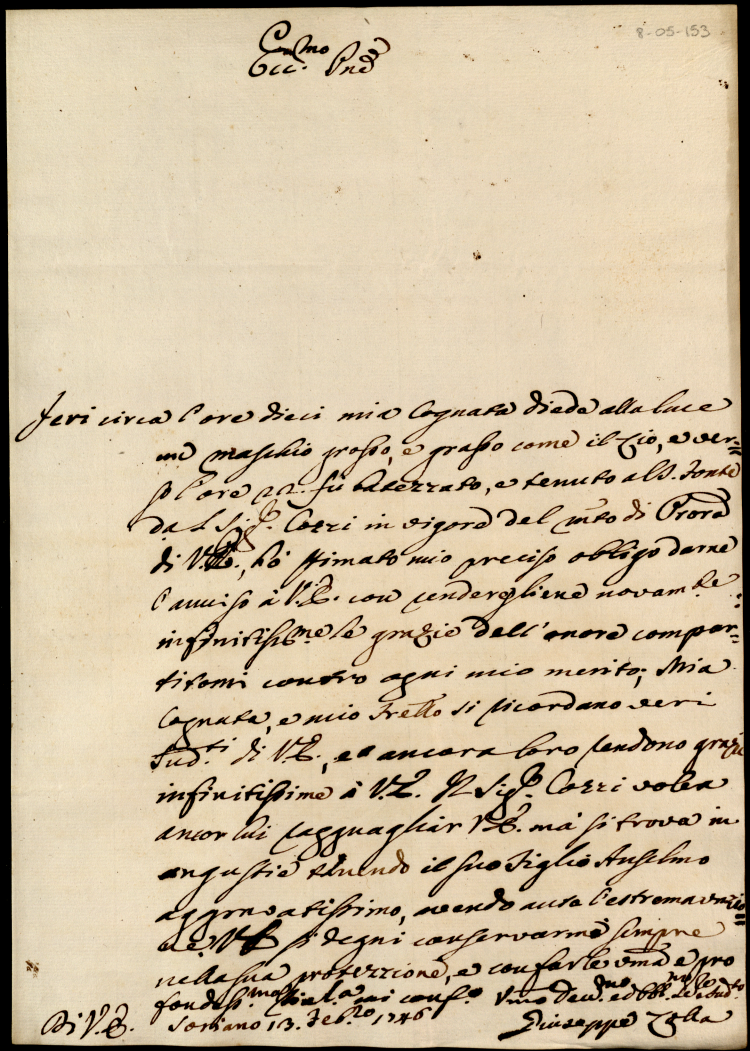 8-05-153
Ecc.mo Pne
Jeri circa l'ore dieci mia Cognata diede alla luce
un maschio grosso, e grasso come il Zio, e ver=
so l'ore 22. fù batezzato, e tenuto al S. Fonte
dal Sig.r Cozzi in vigore del mto di Prora
di V.E., hò stimato mio preciso obligo darne
l'auuiso à V.E. con rendergliene novam.te
infinitiss.me le grazie dell'onore compar=
titomi contro ogni mio merito; Mia
Cognata, e mio Frello si ricordano veri
Sud.ti di V.E., ed ancora loro rendono grazie
infinitissime à V.E. Il Sig.r Cozzi volea
ancor lui ragguagliar V.E. mà si trova in
angustie avendo il suo Figlio Anselmo
aggravatissimo, avendo auta l'estrema unzio=
ne V.E. si degni conservarmi sempre
nella sua protezzione, e con farle uma e pro
fondiss.ma mi conf.o Vmo Deu.mo ed Obb.mo Se Sud.to
Di V.E. Soriano 13. Feb.ro 1746 Giuseppe